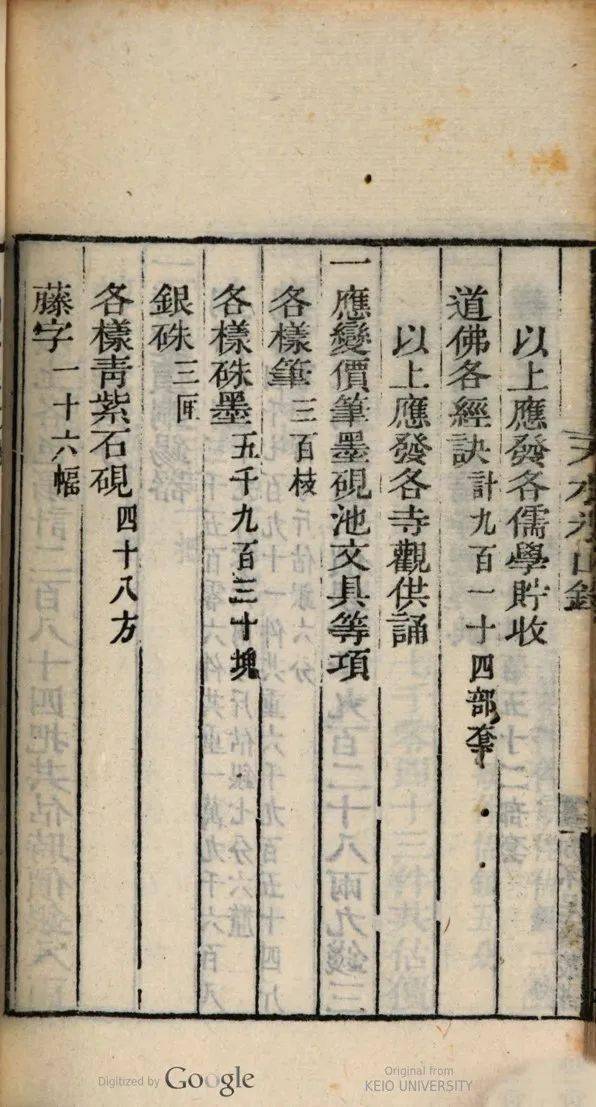 天水冰山錄
以上應發各儒學貯收
道佛各經訣計九百一十四部套
以上應發各寺觀供誦
一應變價筆墨硯池文具等項
各樣筆三百枝
各樣硃墨五千九百三十塊
銀硃三匣
各樣靑紫石硯四十八方
藤字一十六幅
Digitized by Google
Original from
KEIO UNIVERSITY